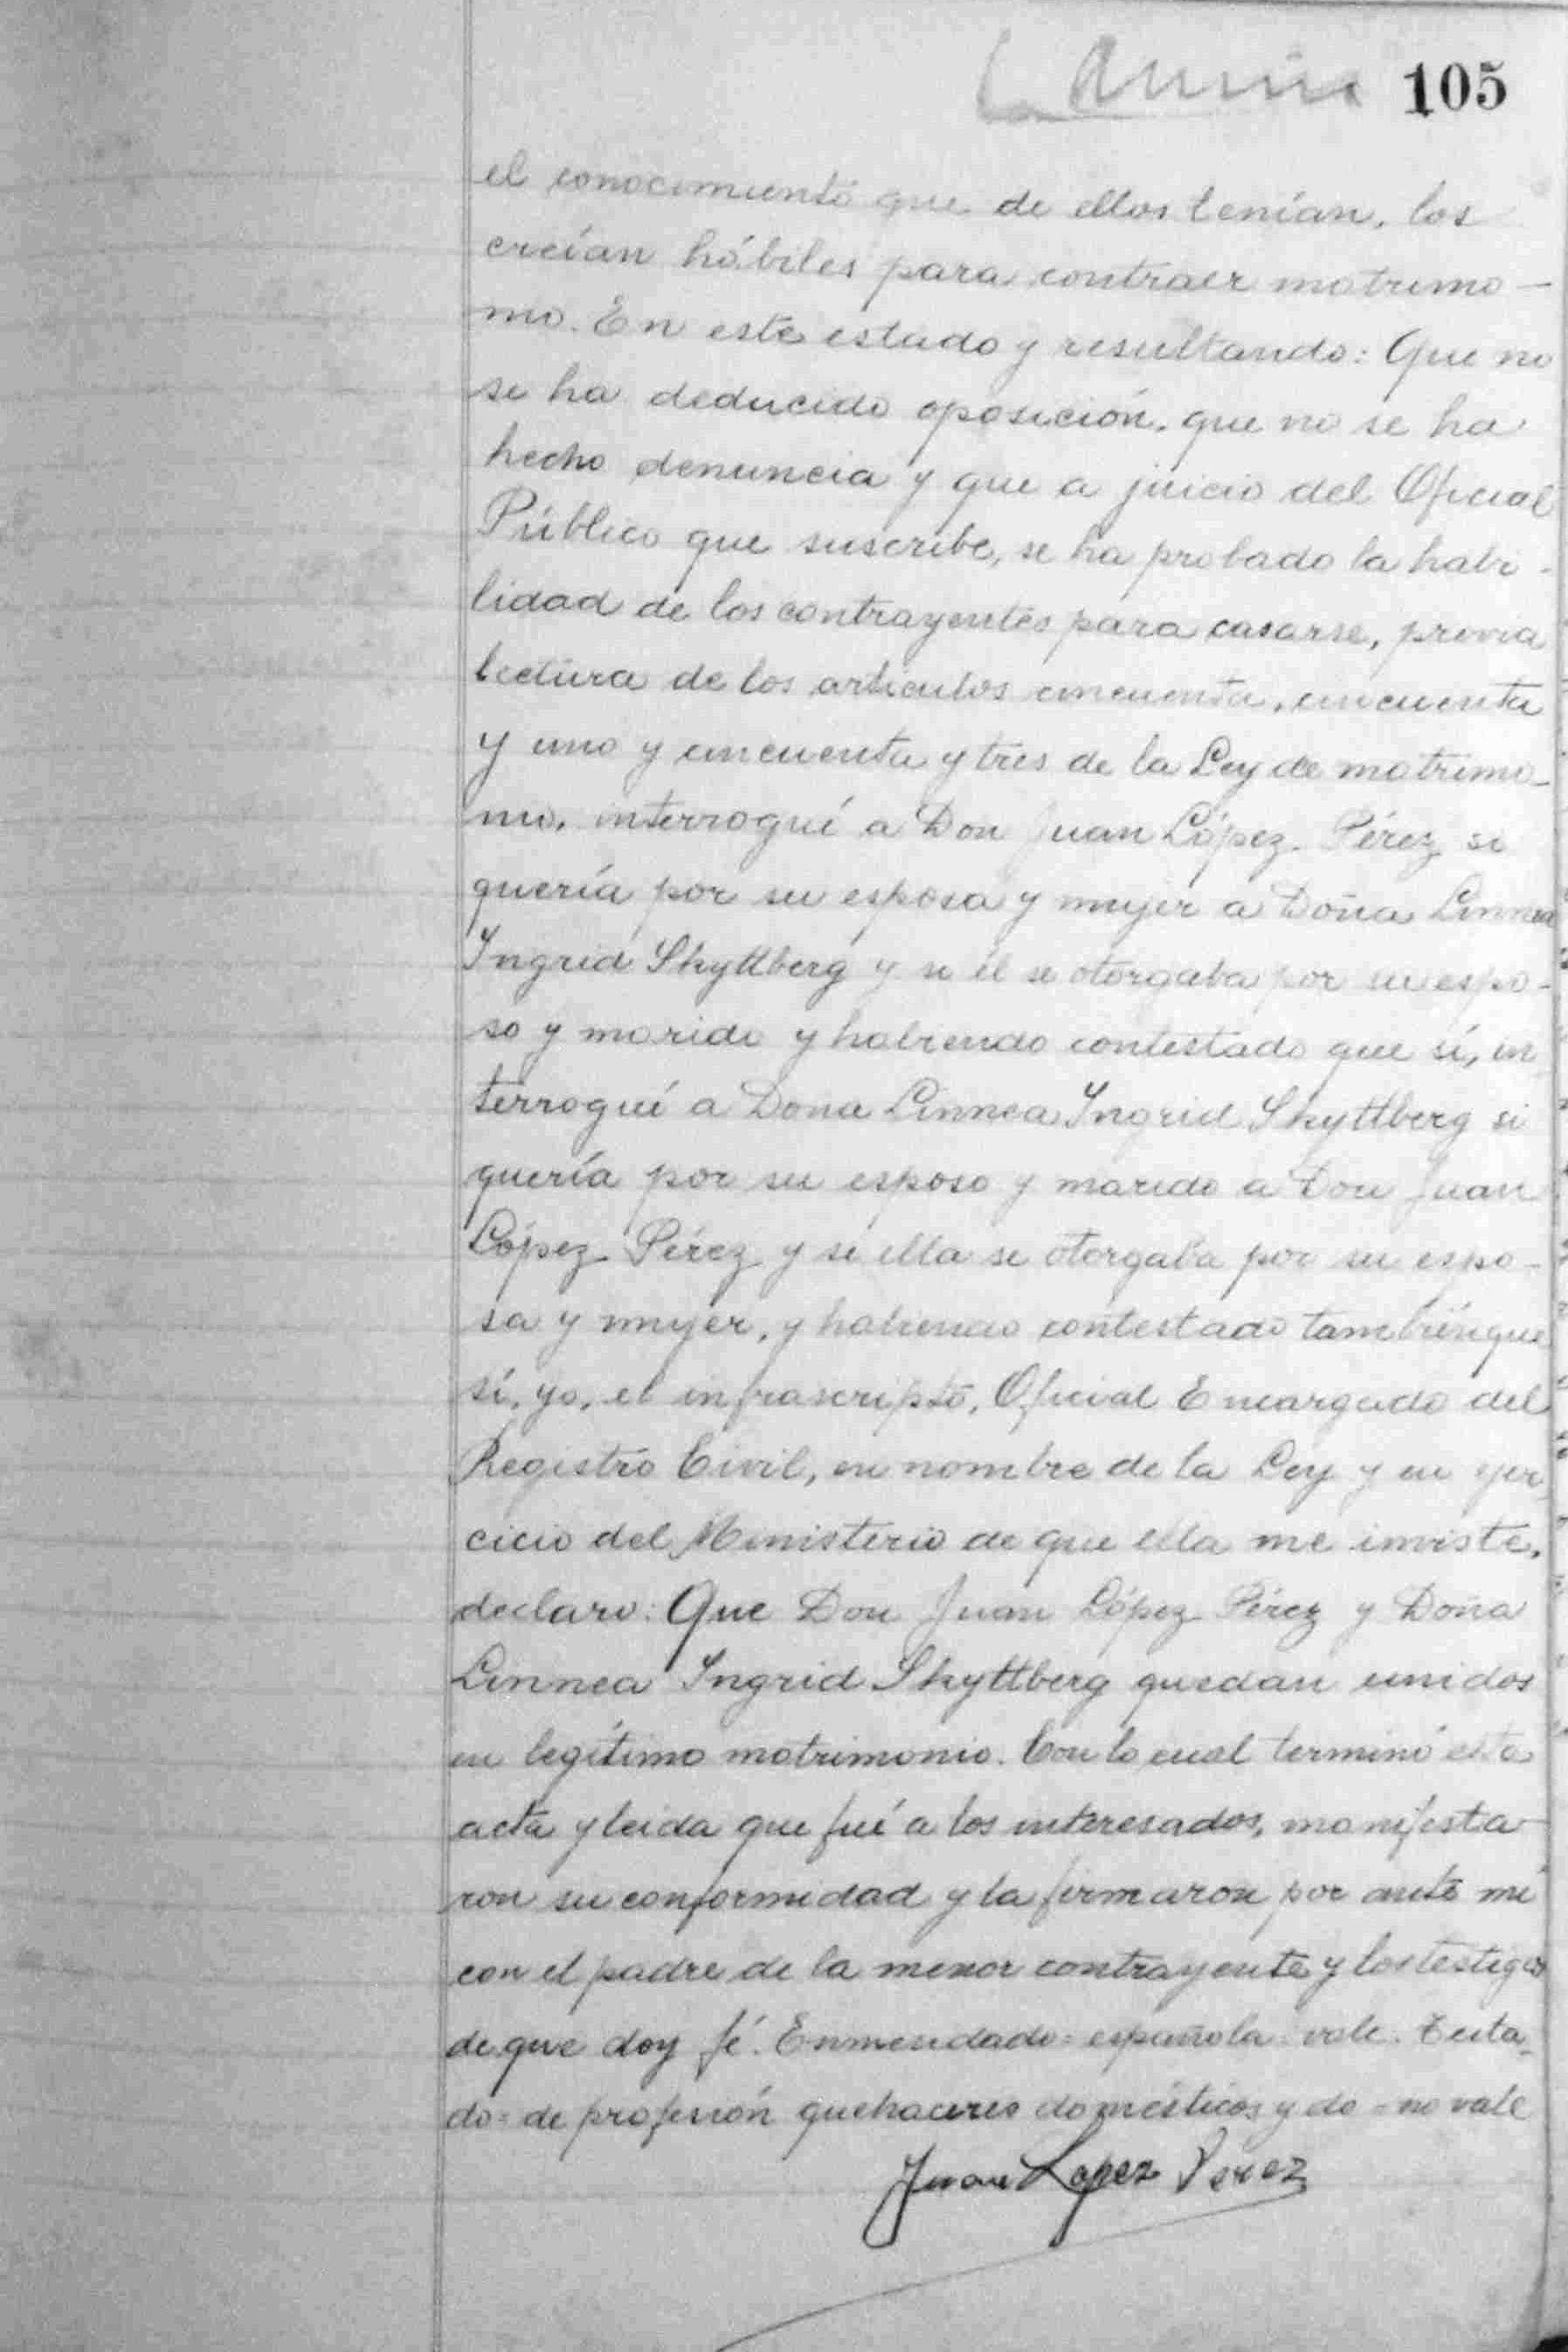 105
el conocimiento que de ellos tenían, los
creían hábiles para contraer matrimo-
nio. En este estado y resultando: Que no
se ha deducido oposición, que no se ha
hecho denuncia y que a juicio del Oficial
Público que suscribe, se ha probado la habi-
lidad de los contrayentes para casarse, previa
lectura de los artículos cincuenta, cincuenta
y uno y cincuenta y tres de la Ley de matrimo-
nio, interrogué a Don Juan López Pérez si
quería por su esposa y mujer a Doña Linnea
Ingrid Skyttberg y si él se otorgaba por su espo-
so y marido y habiendo contestado que sí, in
terrogué a Doña Linnea Ingrid Skyttberg si
quería por su esposo y marido a Don Juan
López Pérez y si ella se otorgaba por su espo-
sa y mujer, y habiendo contestado también que
sí, yo, el infrascripto, Oficial Encargado del
Registro Civil, en nombre de la Ley y en ejer
cicio del Ministerio de que ella me inviste,
declaro: Que Don Juan López Pérez y Doña
Linnea Ingrid Skyttberg quedan unidos
en legítimo matrimonio. Con lo cual terminó esta
acta y leída que fué a los interesados, manifesta-
ron su conformidad y la firmaron por ante mí
con el padre de la menor contrayente y los testigos
de que doy fé. Enmendado=española=vale. Testa-
do=de profesión quehaceres domésticos y do=no vale
Juan Lopez Perez